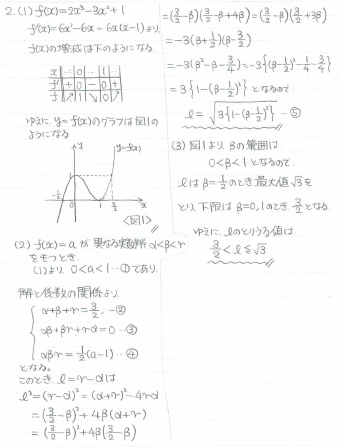 2.(1) f(x)=2x³-3x²+1
f'(x)=6x²-6x=6x(x-1)より
f(x)の増減は下のようになる
x … 0 … 1 …
f' + 0 - 0 +
f ↗ 1 ↘ 0 ↗
ゆえに y=f(x)のグラフは図1の
ようになる
y
y=f(x)
1
-1/2 0 1 3/2 x
<図1>
(2) f(x)=a が 異なる実数解 α<β<γ
をもつとき
(1)より 0<a<1 …① であり、
解と係数の関係より
α+β+γ=3/2 …②
αβ+βγ+γα=0 …③
αβγ=1/2(a-1) …④
となる。
このとき l=γ-α は
l²=(γ-α)²=(α+γ)²-4γα
=(3/2-β)²+4β(α+γ)
=(3/2-β)²+4β(3/2-β)
=(3/2-β)(3/2-β+4β)=(3/2-β)(3/2+3β)
=-3(β+1/2)(β-3/2)
=-3(β²-β-3/4)=-3{(β-1/2)²-1/4-3/4}
=3{1-(β-1/2)²} となるので
l=√3{1-(β-1/2)²} …⑤
(3) 図1より βの範囲は
0<β<1となるので
lはβ=1/2のとき最大値√3を
とり、下限はβ=0,1のとき 3/2となる
ゆえに lのとりうる値は
3/2<l≦√3